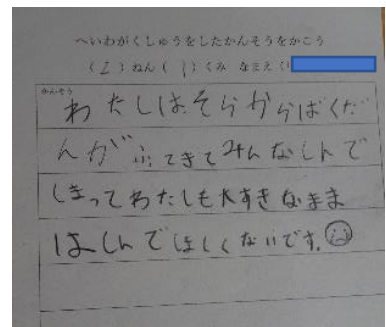 へいわがくしゅうをしたかんそうをかこう
(2)ねん(1)くみ なまえ(
かんそう
わたしは、そらからばくだ
んがふてきてみんなしんで
しまってわたしも大すきなまま
はしんでほしくないです。